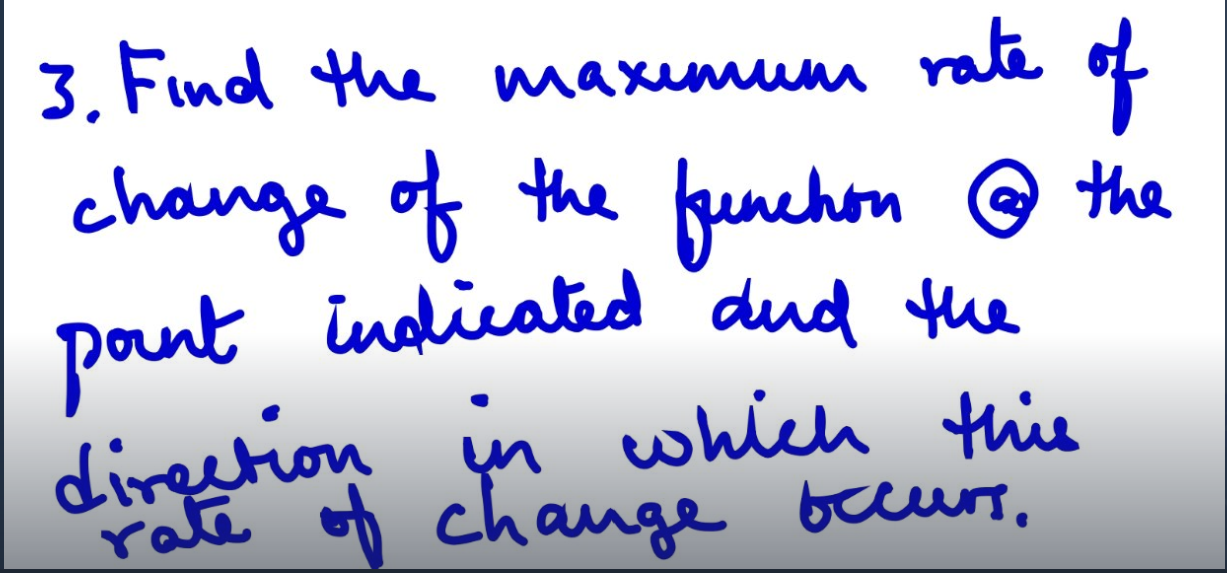 3. Find the maximum rate of
change of the function @ the
point indicated and the
direction in which this
rate of change occurs.